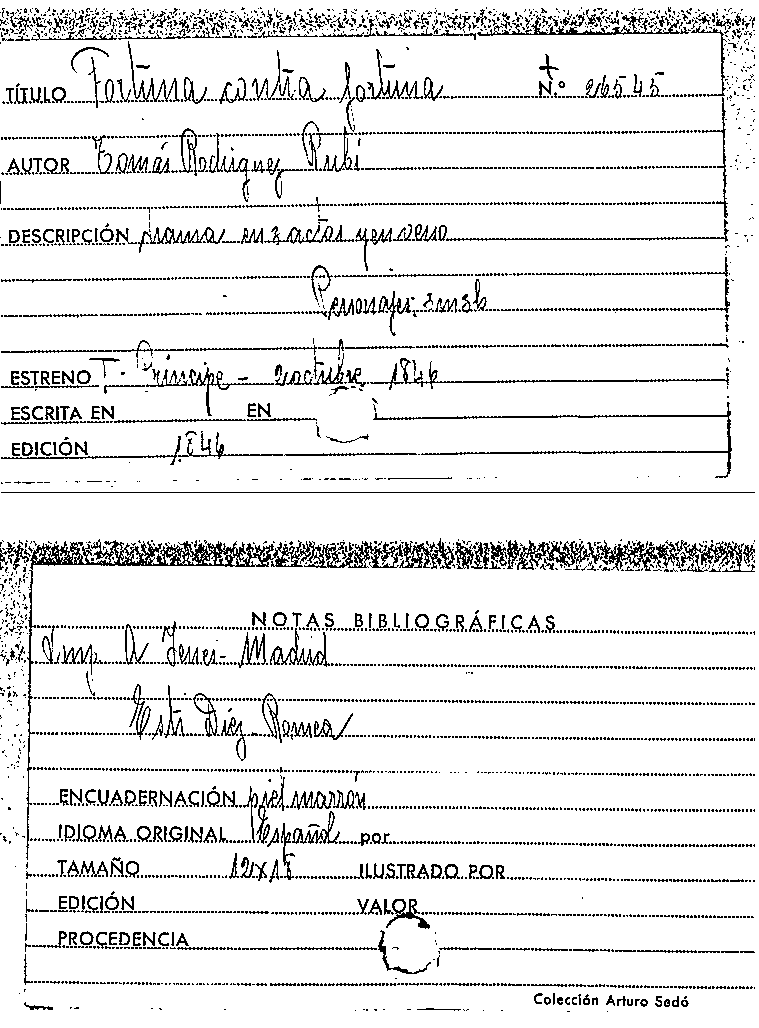 TÍTULO Fortuna contra fortuna N.º 26545
AUTOR Tomás Rodriguez Rubí
DESCRIPCIÓN drama en 3 actos y en verso
Personajes: 3m 3h
ESTRENO T. Príncipe - 2 octubre 1846
ESCRITA EN EN
EDICIÓN 1846
NOTAS BIBLIOGRÁFICAS
Imp. A Madrid
Díez - Romea
ENCUADERNACIÓN piel marrón
IDIOMA ORIGINAL Español por
TAMAÑO 12x18 ILUSTRADO POR
EDICIÓN VALOR
PROCEDENCIA
Colección Arturo Sedó